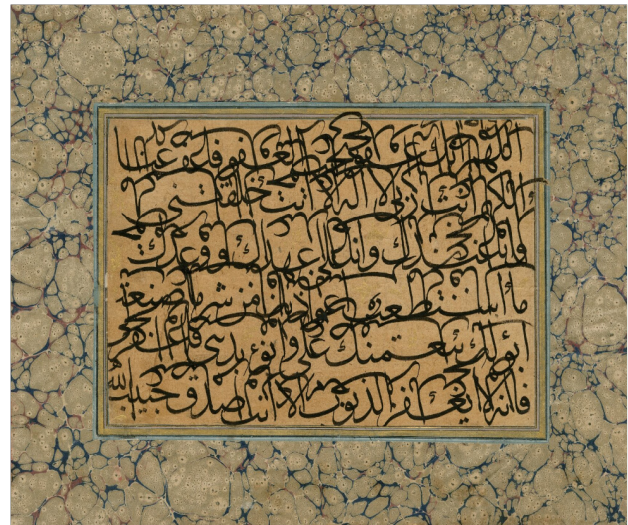 اللهم إنك عفو تحب العفو فاعف عنا
اللهم أنت ربي لا إله إلا أنت خلقتني
وأنا عبدك وأنا على عهدك ووعدك
ما استطعت أعوذ بك من شر ما صنعت
أبوء لك بنعمتك علي وأبوء بذنبي فاغفر لي
فإنه لا يغفر الذنوب إلا أنت صدق حبيب الله